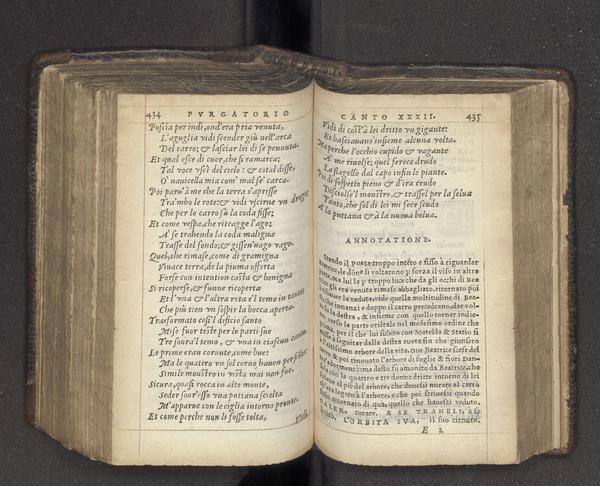 434 PVRGATORIO
Poscia per indi, ond'era pria venuta,
L'aguglia vidi scender giù nell'arca
Del carro; & lasciar lei di se pennuta.
Et qual esce di cuor, che si ramarca;
Tal voce vscì del cielo: & cotal disse,
O nauicella mia com' mal se' carca.
Poi paru' à me che la terra s'aprisse
Tra'mbo le rote: & vidi vscirne vn drago,
Che per lo carro sù la coda fisse:
Et come vespa, che ritragge l'ago;
A' se trahendo la coda maligna
Trasse del fondo; & gissen'uago vago.
Quel, che rimase, come di gramigna
Viuace terra, de la piuma offerta
Forse con intention casta & benigna
Si ricoperse, & funne ricoperta
Et l'vna & l'altra rota e'l temo in tanto;
Che più tien vn sospir la bocca aperta.
Trasformato cosi'l dificio santo
Mise fuor teste per le parti sue
Tre soura'l temo, & vna in ciascun canto.
Le prime eran cornute, come bue:
Ma le quattro vn sol corno hauen per
Simile monstro in vista mai non fue.
Sicura, quasi rocca in alto monte,
Seder sour'esso vna puttana sciolta
M'apparue con le ciglia intorno pronte.
Et come perche non li fosse tolta,
CANTO XXXII. 435
Vidi di costà lei dritto vn gigante:
Et basciauansi insieme alcuna volta.
Ma perche l'occhio cupido & vagante
A' me riuolse; quel feroce drudo
La flagellò dal capo infin le piante.
Poi di sospetto pieno & d'ira crudo
Disciolse'l monstro, & trassel per la selua
Tanto, che sol di lei mi fece scudo
A la puttana & a la nuoua belua.
ANNOTATIONE.
Stando il Poeta troppo intēto e fisso à riguardar
Beatrice, le dōne li voltarono p forza il viso in altra
parte. Ma lui la p troppo luce che da gli occhi di Bea
trice gli era venuta rimase abbagliato. ritornato poi
à rihauer la veduta, vide quella moltitudine di Bea-
ti, che innanzi e doppo il carro precedeano, dar vol-
ta su la destra, & insieme con quello tornar indie-
tro verso la parte orientale nel medesimo ordine che
prima. per il che lui subito con Matelda & Statio si
misse à seguitar dalla destra ruota fin che giunsero
à l'altissimo arbore della vita. oue Beatrice scese del
carro & poi rinouato l'arbore di foglie & fiori Dan-
te s'adormentò. ma desto fu amonito da Beatrice, che
con le quattro e tre donne dritte intorno di lei
sedeua al piè del arbore, che douesse mirare al carro
ch'era legato à l'arbore, e che poi scriuesse quando
fosse ritornato di qua, quello che hauesse veduto.
CALER, curare. A SE TRAHELI, à se
tirò. L'ORBITA SVA, il suo circuito.
E 2